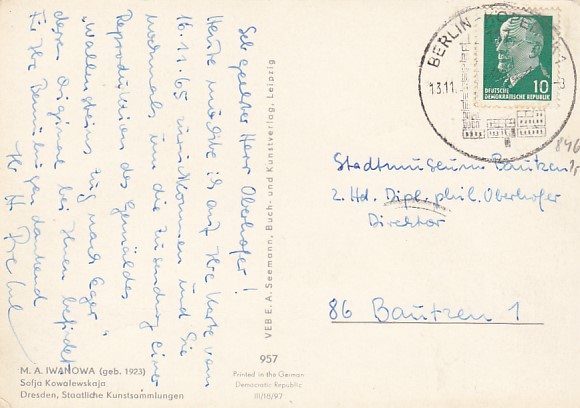 Sehr geehrter Herr Oberhofer!
Heute möchte ich auf Ihre Karte vom
16.11.65 zurückkommen und Sie
nochmals um die Zusendung einer
Reproduktion des Gemäldes
"Wallensteins Zug nach Eger"
dessen Original bei Ihnen befindet
Für Ihre Bemühungen dankend
M. A. IWANOWA (geb. 1923)
Sofja Kowalewskaja
Dresden, Staatliche Kunstsammlungen
VEB E. A. Seemann, Buch- und Kunstverlag, Leipzig
957
Printed in the German
Democratic Republic
III/18/97
BERLIN
13.11.
10
DEUTSCHE
DEMOKRATISCHE REPUBLIK
846
Stadtmuseum Bautzen
z. Hd. Dipl. phil. Oberhofer
Direktor
86 Bautzen 1